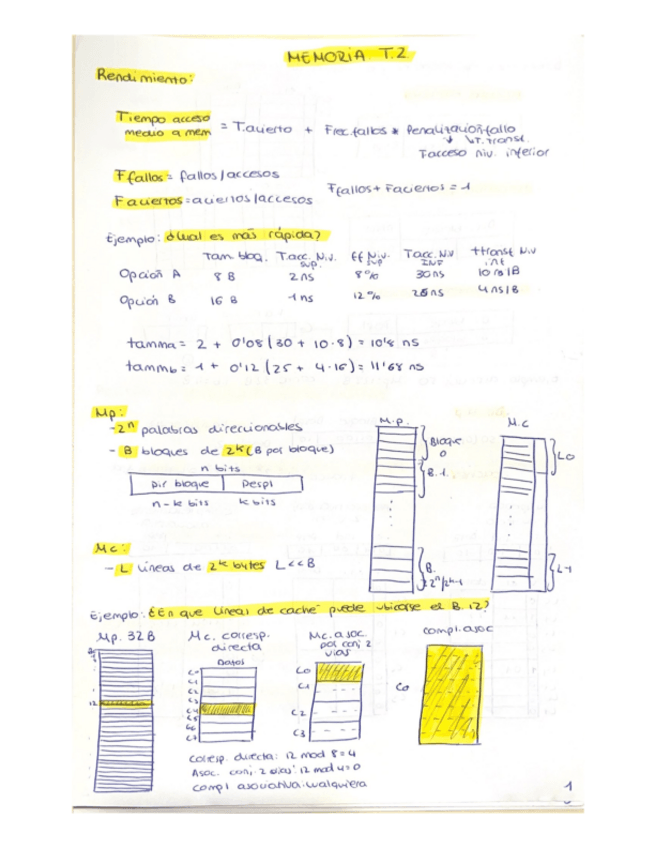 MEMORIA T.2
Rendimiento:
Tiempo acceso medio a mem = T.acierto + Frec.fallos * Penalización fallo
T.transf.
T acceso niv. inferior
F fallos = fallos/accesos
F aciertos = aciertos/accesos
Ffallos + Faciertos = 1
Ejemplo: ¿Cual es más rápida?
Tam. bloq. T.acc. Niv. sup. ff Niv. sup T.acc. Niv INF ttransf Niv inf
Opción A 8 B 2 ns 8% 30 ns 10 ns/B
Opción B 16 B 1 ns 12% 25 ns 4 ns/B
tamma = 2 + 0'08 (30 + 10·8) = 10'8 ns
tammb = 1 + 0'12 (25 + 4·16) = 11'68 ns
Mp:
- 2ⁿ palabras direccionables
- B bloques de 2ᵏ (B por bloque)
n bits
Dir bloque Despl
n-k bits k bits
M.p.
Bloque 0
B. 1
B. 2ⁿ/2ᵏ-1
M.C
L0
L-1
Mc:
- L líneas de 2ᵏ bytes L<<B
Ejemplo: ¿En que líneas de caché puede ubicarse el B.12?
Mp. 32B
12
Mc. corresp. directa
Datos
C0
C1
C2
C3
C4
C5
C6
C7
Mc. asoc. por conj 2 vias
C0
C1
C2
C3
compl. asoc
C0
Corresp. directa: 12 mod 8 = 4
Asoc. conj. 2 vias: 12 mod 4 = 0
compl asociativa: cualquiera
1